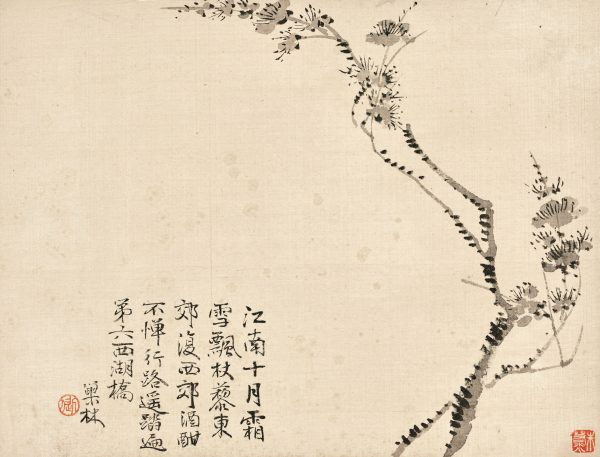 江南十月霜
雪飄杖藜東
郊復西郊酒酣
不憚行路遥踏遍
第六西湖橋
巢林